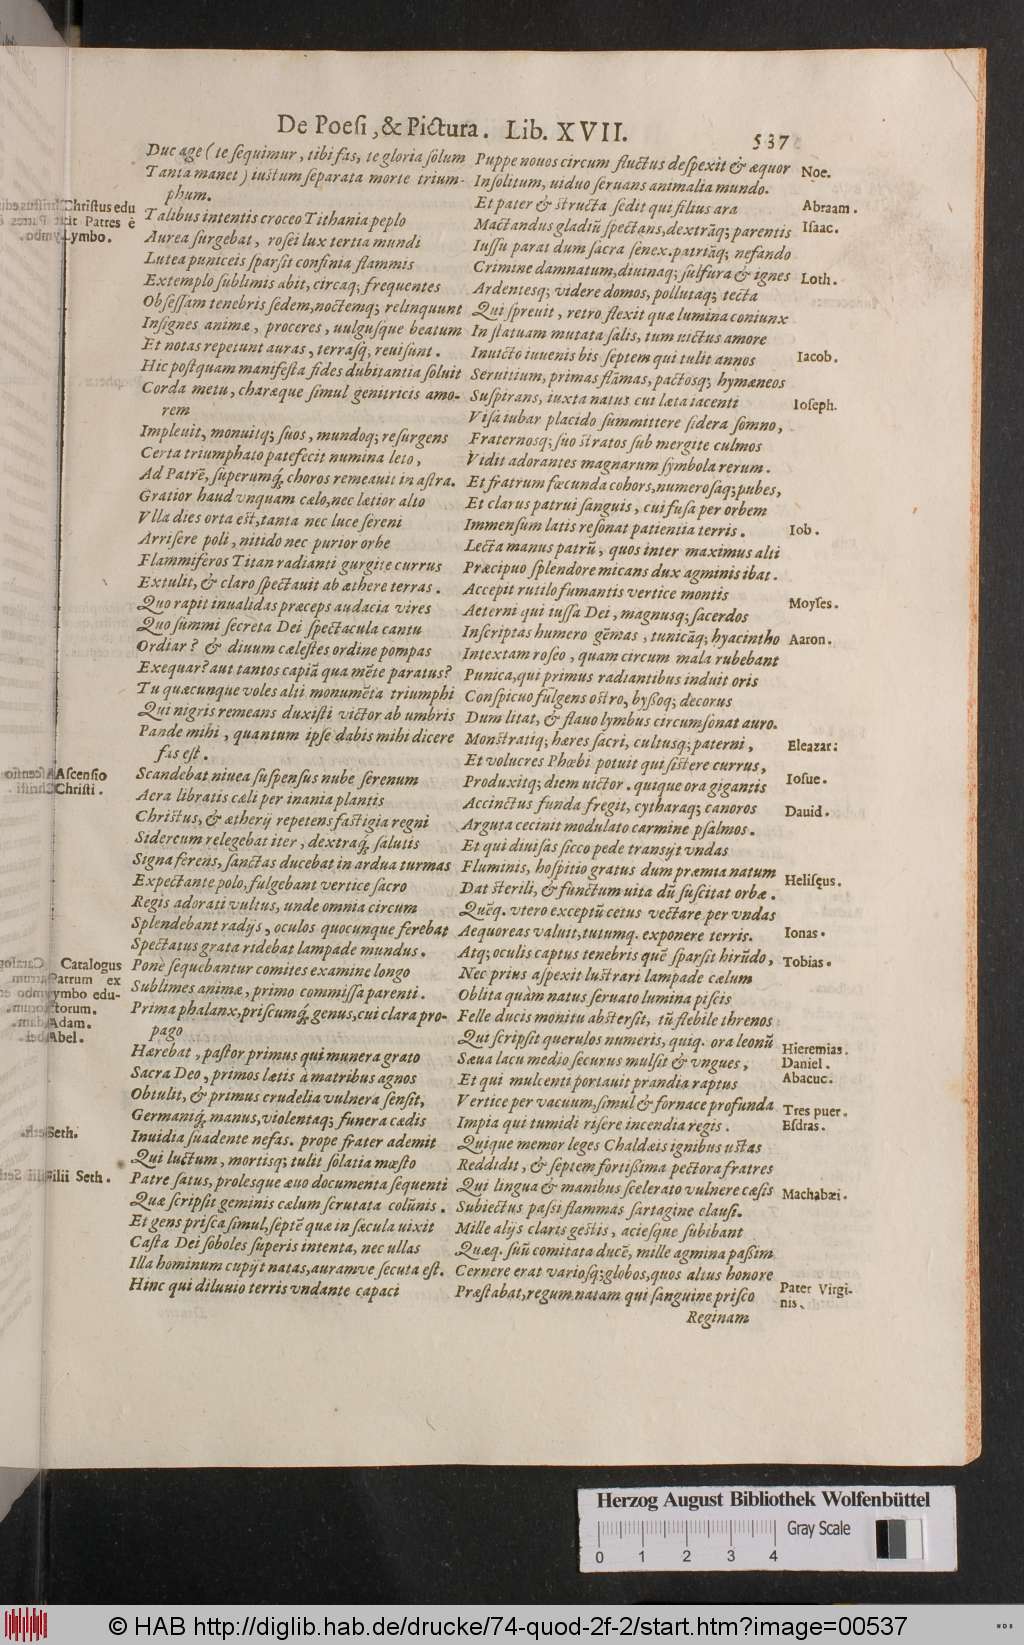 De Poesi, & Pictura. Lib. XVII.
537
Duc age (te sequimur, tibi fas, te gloria solum
Tanta manet) iustum separata morte trium-
phum.
Talibus intentis croceo Tithania peplo
Aurea surgebat, rosei lux tertia mundi
Lutea puniceis sparsit confinia flammis
Extemplo sublimis abit, circaq; frequentes
Obsessam tenebris sedem, noctemq; relinquunt
Insignes animæ, proceres, uulgusque beatum
Et notas repetunt auras, terrasq; reuisunt.
Hic postquam manifesta fides dubitantia soluit
Corda metu, charæque simul genitricis amo-
rem
Impleuit, monuitq; suos, mundoq; resurgens
Certa triumphato patefecit numina leto,
Ad Patrē, superumq́; choros remeauit in astra.
Gratior haud vnquam cælo, nec lætior alto
Vlla dies orta est, tanta nec luce sereni
Arrisere poli, nitido nec purior orbe
Flammiferos Titan radianti gurgite currus
Extulit, & claro spectauit ab æthere terras.
Quo rapit inualidas præceps audacia vires
Quo summi secreta Dei spectacula cantu
Ordiar? & diuum cælestes ordine pompas
Exequar? aut tantos capiā qua mēte paratus?
Tu quæcunque voles alti monumēta triumphi
Qui nigris remeans duxisti victor ab umbris
Pande mihi, quantum ipse dabis mihi dicere
fas est.
Scandebat niuea suspensus nube serenum
Aera libratis cæli per inania plantis
Christus, & ætherij repetens fastigia regni
Sidereum relegebat iter, dextraq́; salutis
Signa ferens, sanctas ducebat in ardua turmas
Expectante polo, fulgebant vertice sacro
Regis adorati vultus, unde omnia circum
Splendebant radijs, oculos quocunque ferebat
Spectatus grata ridebat lampade mundus.
Ponè sequebantur comites examine longo
Sublimes animæ, primo commissa parenti.
Prima phalanx, priscumq́; genus, cui clara pro-
pago
Hærebat, pastor primus qui munera grato
Sacra Deo, primos lætis à matribus agnos
Obtulit, & primus crudelia vulnera sensit,
Germaniq́; manus, violentaq; funera cædis
Inuidia suadente nefas. prope frater ademit
Qui luctum, mortisq; tulit solatia mœsto
Patre satus, prolesque æuo documenta sequenti
Quæ scripsit geminis cælum scrutata colūnis.
Et gens prisca simul, septē quæ in sæcula uixit
Casta Dei soboles superis intenta, nec ullas
Illa hominum cupijt natas, auramve secuta est.
Hinc qui diluuio terris vndante capaci
Christus edu
cit Patres è
Lymbo.
Ascensio
Christi.
Catalogus
Patrum ex
Lymbo edu-
ctorum.
Adam.
Abel.
Seth.
Filii Seth.
Puppe nouos circum fluctus despexit & æquor
Insolitum, uiduo seruans animalia mundo.
Et pater & structa sedit qui filius ara
Mactandus gladiū spectans, dextrāq; parentis
Iussu parat dum sacra senex. patriāq; nefando
Crimine damnatum, diuinaq; sulfura & ignes
Ardentesq; videre domos, pollutaq; tecta
Qui spreuit, retro flexit quæ lumina coniunx
In statuam mutata salis, tum victus amore
Inuicto iuuenis bis septem qui tulit annos
Seruitium, primas flāmas, pactosq; hymæneos
Suspirans, iuxta natus cui læta iacenti
Visa iubar placido summittere sidera somno,
Fraternosq; suo stratos sub mergite culmos
Vidit adorantes magnarum symbola rerum.
Et fratrum fœcunda cohors, numerosaq; pubes,
Et clarus patrui sanguis, cui fusa per orbem
Immensum latis resonat patientia terris.
Lecta manus patrū, quos inter maximus alti
Præcipuo splendore micans dux agminis ibat.
Accepit rutilo fumantis vertice montis
Aeterni qui iussa Dei, magnusq; sacerdos
Inscriptas humero gēmas, tunicāq; hyacintho
Intextam roseo, quam circum mala rubebant
Punica, qui primus radiantibus induit oris
Conspicuo fulgens ostro, byssoq; decorus
Dum litat, & flauo lymbus circumsonat auro.
Monstratiq; hæres sacri, cultusq; paterni,
Et volucres Phœbi potuit qui sistere currus,
Produxitq; diem uictor. quique ora gigantis
Accinctus funda fregit, cytharaq; canoros
Arguta cecinit modulato carmine psalmos.
Et qui diuisas sicco pede transijt vndas
Fluminis, hospitio gratus dum præmia natum
Dat sterili, & functum uita dū suscitat orbæ.
Quēq. vtero exceptū cetus vectare per vndas
Aequoreas valuit, tutumq. exponere terris.
Atq; oculis captus tenebris quē sparsit hirūdo,
Nec prius aspexit lustrari lampade cælum
Oblita quàm natus seruato lumina piscis
Felle ducis monitu abstersit, tū flebile threnos
Qui scripsit querulos numeris, quiq. ora leonū
Sæua lacu medio securus mulsit & vngues,
Et qui mulcenti portauit prandia raptus
Vertice per vacuum, simul & fornace profunda
Impia qui tumidi risere incendia regis.
Quique memor leges Chaldæis ignibus ustas
Reddidit, & septem fortissima pectora fratres
Qui lingua & manibus scelerato vulnere cæsis
Subiectus passi flammas sartagine clausi.
Mille alijs claris gestis, aciesque subibant
Quæq. suū comitata ducē, mille agmina passim
Cernere erat variosq; globos, quos altus honore
Præstabat, regum natam qui sanguine prisco
Reginam
Noe.
Abraam.
Isaac.
Loth.
Iacob.
Ioseph.
Iob.
Moyses.
Aaron.
Eleazar:
Iosue.
Dauid.
Helisęus.
Ionas.
Tobias.
Hieremias.
Daniel.
Abacuc.
Tres puer.
Esdras.
Machabæi.
Pater Virgi-
nis.
Herzog August Bibliothek Wolfenbüttel
Gray Scale
0 1 2 3 4
© HAB http://diglib.hab.de/drucke/74-quod-2f-2/start.htm?image=00537